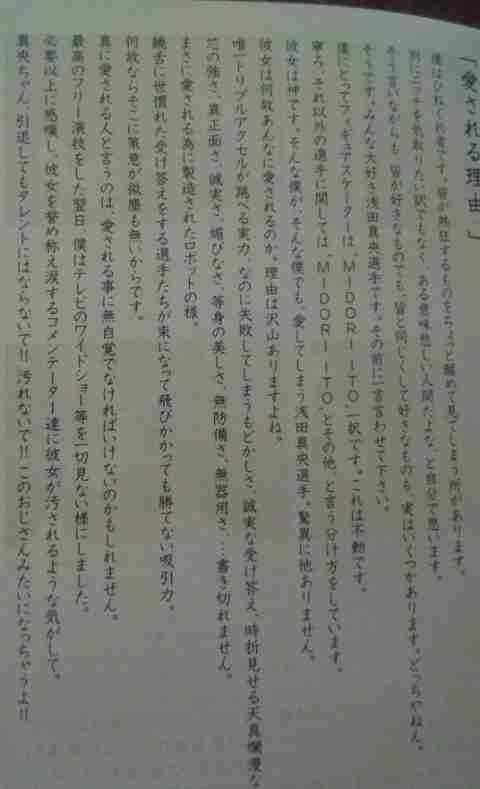 「愛される理由」
僕はひねくれ者です。皆が熱狂するものをちょっと醒めて見てしまう所があります。
別にニッチを気取りたい訳でもなく、ある意味悲しい人間だよな、と自分で思います。
そう言いながらも、皆が好きなものでも、皆と同じくして好きなものも、実はいくつかあります。どっちやねん。
そうです。みんな大好き浅田真央選手です。その前に一言言わせて下さい。
僕にとってフィギュアスケーターは、ＭＩＤＯＲＩ ＩＴＯ、一択です。これは不動です。
寧ろ、それ以外の選手に関しては、ＭＩＤＯＲＩ ＩＴＯ、とその他、と言う分け方をしています。
彼女は神です。そんな僕が、そんな僕でも、愛してしまう浅田真央選手。驚異に他ありません。
彼女は何故あんなに愛されるのか。理由は沢山ありますよね。
唯一トリプルアクセルが跳べる実力、なのに失敗してしまうもどかしさ、誠実な受け答え、時折見せる天真爛漫な
芯の強さ、真正面さ、誠実さ、媚びなさ、等身の美しさ、無防備さ、無器用さ、…書き切れません。
まさに愛される為に製造されたロボットの様。
饒舌に世慣れた受け答えをする選手たちが束になって飛びかかっても勝てない吸引力。
何故ならそこに策意が微塵も無いからです。
真に愛される人と言うのは、愛される事に無自覚でなければいけないのかもしれません。
最高のフリー演技をした翌日、僕はテレビのワイドショー等を一切見ない様にしました。
必要以上に感嘆し、彼女を誉め称え涙するコメンテーター達に彼女が汚されるような気がして。
真央ちゃん、引退してもタレントにはならないで!! 汚れないで!! このおじさんみたいになっちゃうよ!!